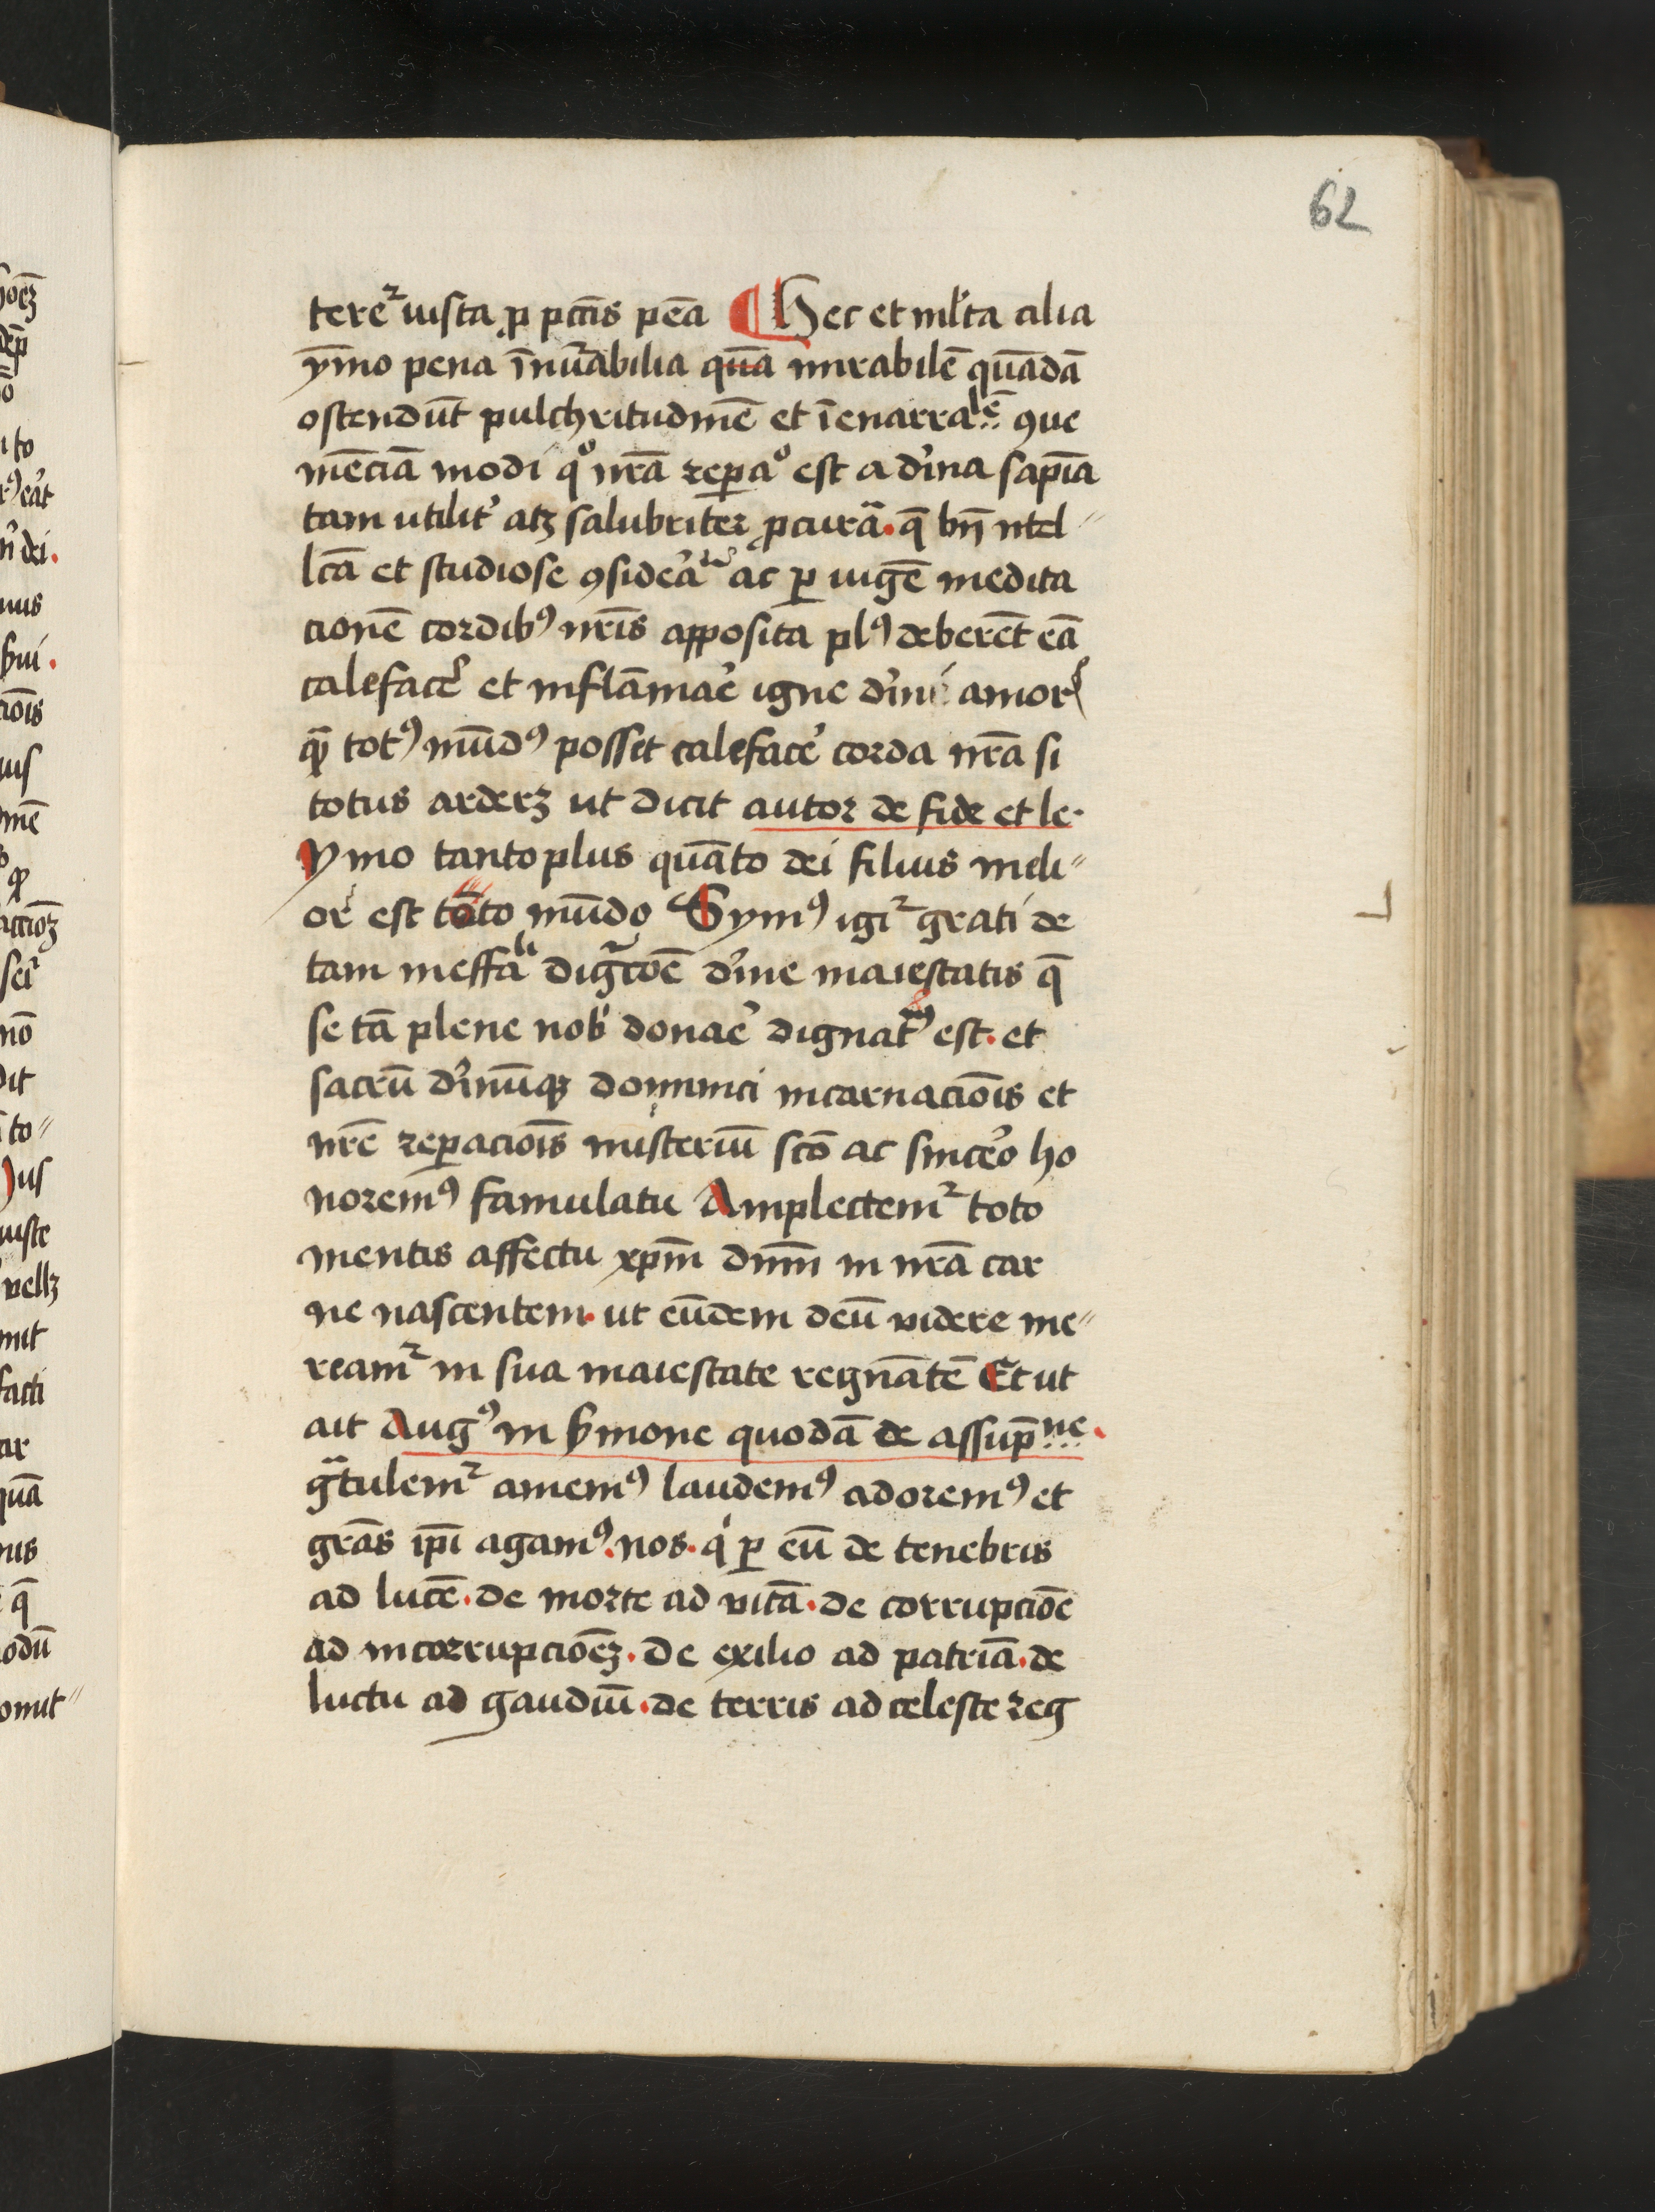 62
tere᷑ iusta ꝓ pctı̄s pēa ¶ Hec et ml̓ta alia
ȳmo pena īnuᷣabilia qūa mirabilē quādā
ostendūt pulchritudinē et īenarralē ꝯue
niēciā modi qͦ nr̄a reꝑaͦ est a d̓ina sapīa
tam utilit̓ atꝫ salubriter ꝓcurā. q̄ bn̄ intel〃
lcā et studiose ꝯsid̓eāᵗᵉ ac ꝑ iugē medita
cionē cordibꝰ nr̄is apposita plꝰ deberēt eā
calefac̓e et inflāmac̓e igne d̓ini amorꝭ
qᷓꝫ totꝰ mūdꝰ posset caleface̓ corda nr̄a si
totus arderꝫ ut dicit autor de fide et le.
Ymo tanto plus quāto dei filius meli〃
or est toto mūdo Symꝰ igi᷑ grati de
tam ineffāˡⁱ digᷓcōe d̓ine maiestatis q̄
se tā plene nob̓ donae̓ dignatꝰ est. et
sacrū d̓inūqꝫ dominici incarnaciōis et
nr̄e reꝑaciōis misteriū sc̄o ac sinc̓eo ho
noremꝰ famulatu Amplectem᷑ toto
mentis affectu xp̄m dn̄m in nr̄a car
ne nascentem. ut eūdem deū videre me〃
ream᷑ in sua maiestate regnātē Et ut
ait Augꝰ in ẜmone quodā de assup̄ne.
gᷓtulem᷑ amemꝰ laudemꝰ adoremꝰ et
grās ip̄i agamꝰ. nos. qͥ ꝑ eū de tenebris
ad lucē. de morte ad vitā. de corrupciōe
ad incorrupciōeꝫ. de exilio ad patriā. de
luctu ad gaudiū. de terris ad celeste reg